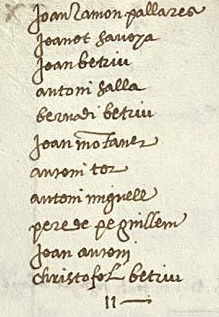 joan ramon pallares
joanot savoya
joan betriu
antoni salla
bernadi betriu
joan motaner
antoni tor
antoni miguell
pere de peguillem
joan antoni
christofol betriu
11